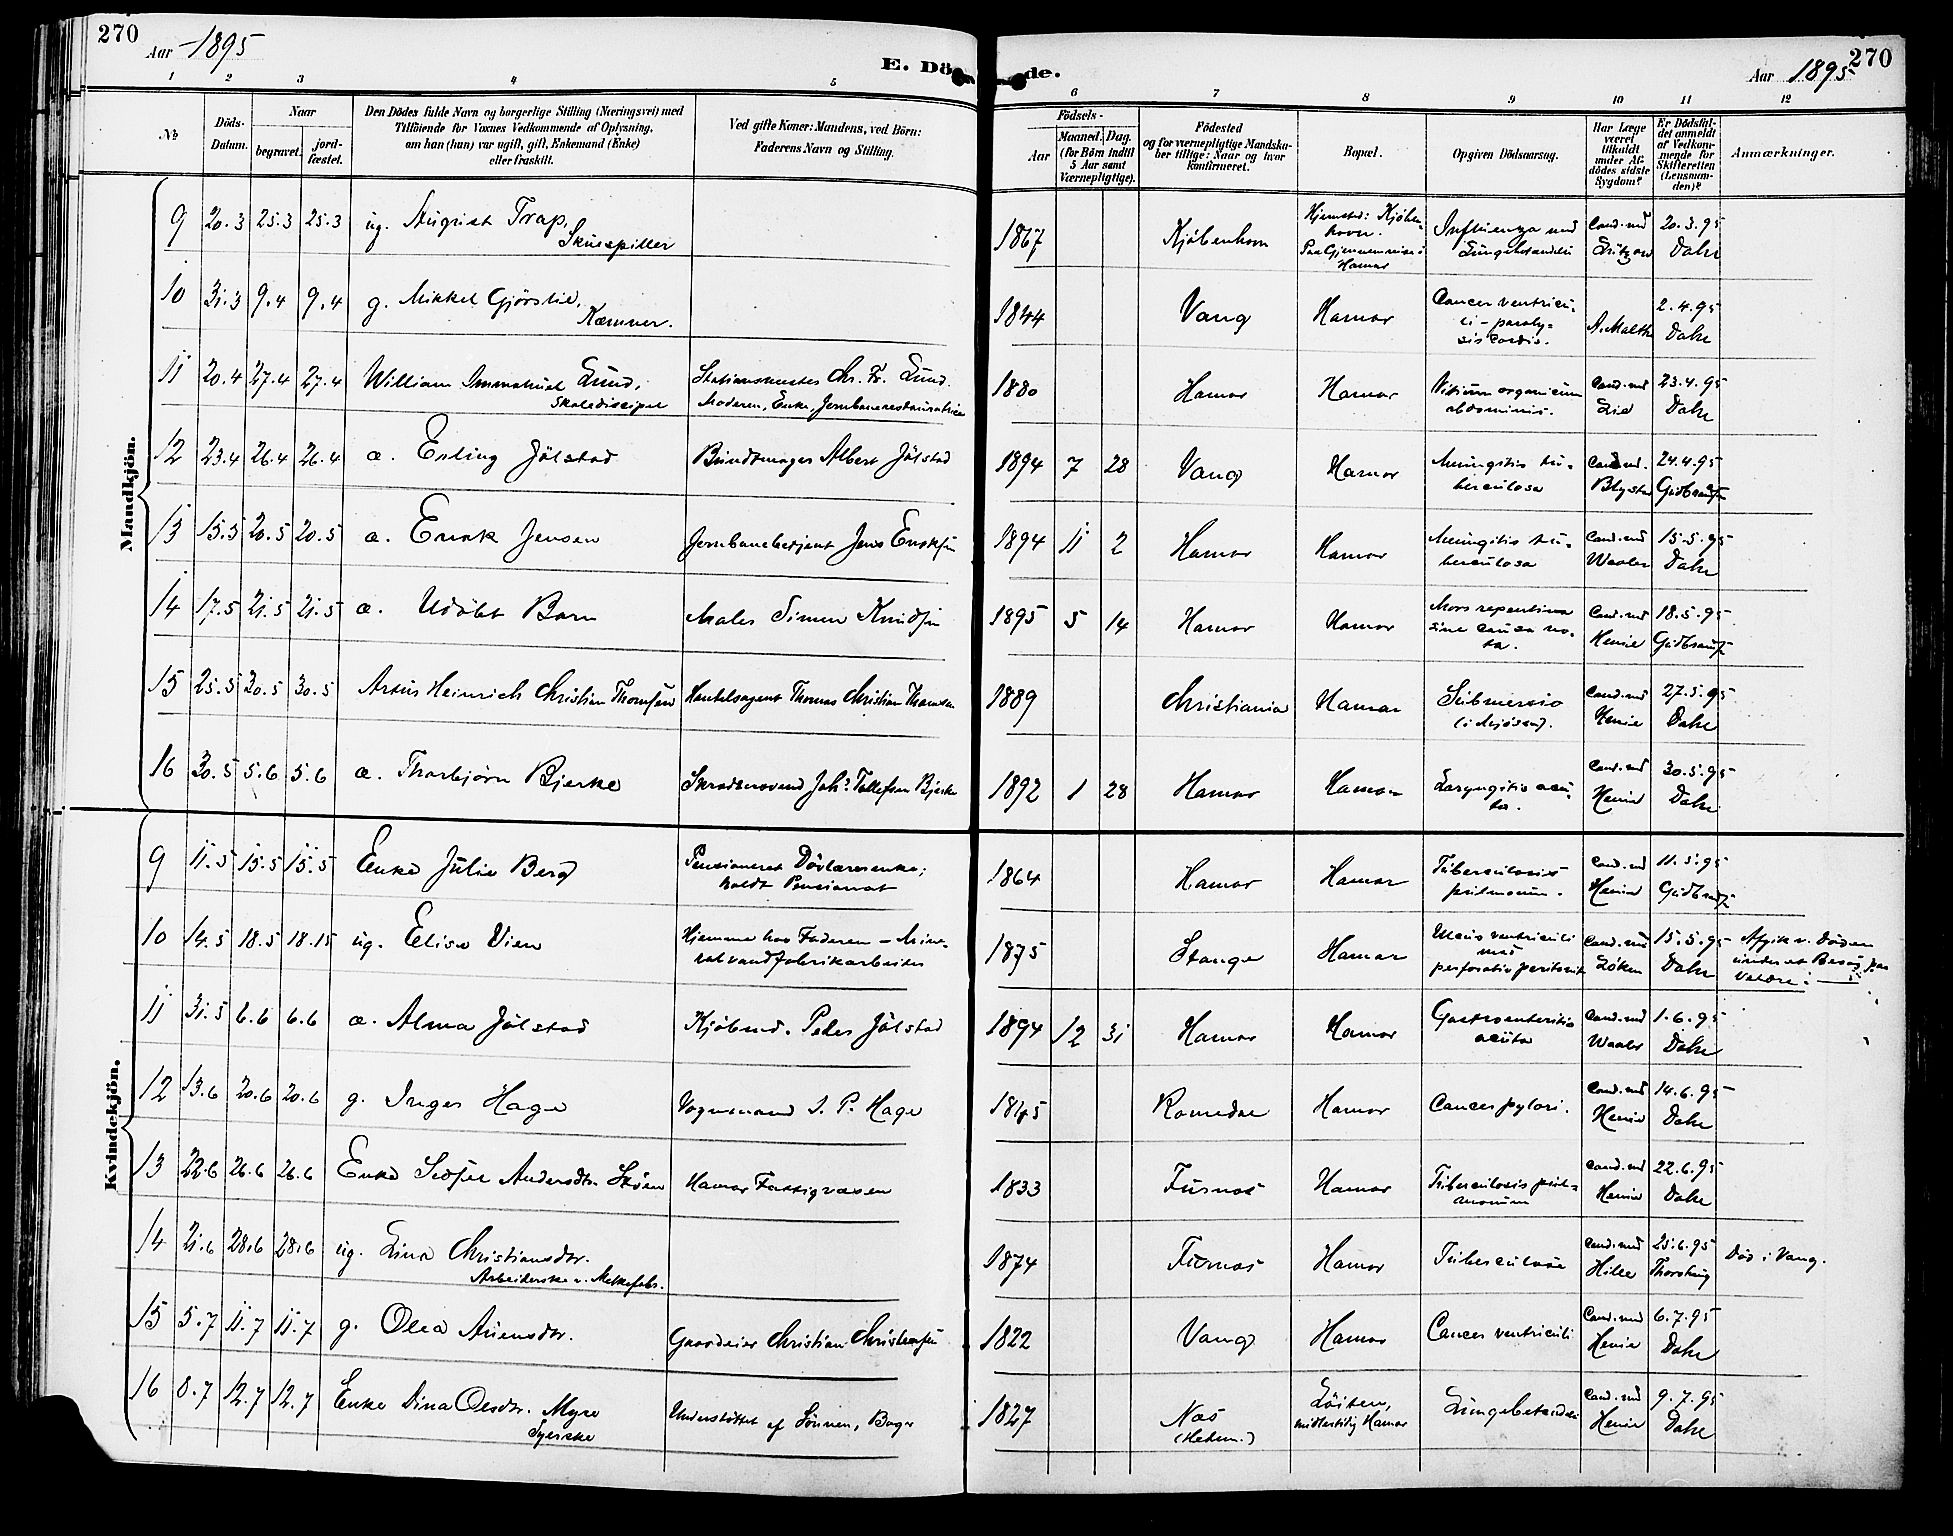 270
Aar 1895
E. Dö
de.
Aar 1895
270
1 2 3 4 5 6 7 8 9 10 11 12
No
Döds-Datum.
Naar
begravet.
jord-fæstet.
Den Dödes fulde Navn og borgerlige Stilling (Næringsvei) med
Tilföiende for Voxnes Vedkommende af Oplysning,
om han (hun) var ugift, gift, Enkemand (Enke)
eller fraskilt.
Ved gifte Koner: Mandens, ved Börn:
Faderens Navn og Stilling.
Födsels-
Aar
Maaned.
Dag.
(for Börn indtil
5 Aar samt
Værnepligtige).
Födested
og for værnepligtige Mandska-
ber tillige: Naar og hvor
konfirmeret.
Bopæl.
Opgiven Dödsaarsag.
Har Læge
været
tilkaldt
under Af-
dödes sidste
Sygdom?
Er Dödsfal-
det anmeldt
af Vedkom-
mende for
Skifteretten
(Lensman-
den)?
Anmærkninger.
Mandkjön.
9 20.3 25.3 25.3 ug. August Trap, 1867 Kjöbenhavn Hjemsted: Kjöben- Influenza med Cand. med 20.3.95
Skuespiller havn. Paa Gjennemreise i Hamar Lungebetændelse Lützow Dahl
10 31.3 9.4 9.4 g. Mikkel Gjörslie, 1844 Vang Hamar Cancer ventricu- A. Malthe 2.4.95
Kæmner. li - paraly- Dahl
sis cordis.
11 20.4 27.4 27.4 William Immanuel Lund, Stationsmester Chr. Fr. Lund. 1880 Hamar Hamar Vitium organicum Cand. med 23.4.95
Skolediscipel Moderen, Enke, Jernbanerestauratrice abdominis. Lie Dahl
12 23.4 26.4 26.4 æ. Erling Jölstad Bundtmager Albert Jölstad 1894 7 28 Vang Hamar Meningitis tu- Cand. md. 24.4.95
berculosa
13 15.5 20.5 20.5 æ. Enok Jensen Jernbanebetjent Jens 1894 11 2 Hamar Hamar Meningitis tu- Cand. md 15.5.95
berculosa Waaler Dahl
14 17.5 21.5 21.5 æ. Udöbt Barn Maler Simen Knudsen 1895 5 14 Hamar Hamar Mors repentina Cand. md 18.5.95
sine causa no- Henie
ta.
15 25.5 30.5 30.5 Artur Heinrich Christian Thomsen Handelsagent Thomas Christian Thomsen 1889 Christiania Hamar Submersio Cand. md 27.5.95
(i Mjösen). Henie Dahl
16 30.5 5.6 5.6 æ. Thorbjörn Bjerke Skræddersvend Johs. Tollefsen Bjerke 1892 1 28 Hamar Hamar Laryngitis acu- Cand. md 30.5.95
ta. Henie Dahl
Kvindekjön.
9 11.5 15.5 15.5 Enke Julie Berg Pensioneret 1864 Hamar Hamar Tuberculosis Cand. md 11.5.95
holdt Pensionat pulmonum. Henie
10 14.5 18.5 18.15 ug. Elise Vien Hjemme hos Faderen - Mine- 1875 Stange Hamar Ulcus ventriculi Cand. md 15.5.95 Afgik v. Döden
ralvandfabrikarbeider med perforativ peritonit Löken Dahl under et Besög paa
Vatne.
11 31.5 6.6 6.6 æ. Alma Jölstad Kjöbmd. Peder Jölstad 1894 12 31 Hamar Hamar Gastroenteritis Cand. md 1.6.95
acuta Waaler Dahl
12 13.6 20.6 20.6 g. Inger Hage Vognmand J. P. Hage 1845 Romedal Hamar Cancer pylori. Cand. md 14.6.95
Henie Dahl
13 22.6 26.6 26.6 Enke Andersdtr. Hamar Fattigvæsen 1833 Furnes Hamar Tuberculosis pul- Cand. md 22.6.95
monum Henie Dahl
14 21.6 28.6 28.6 ug. Lina Christiansdtr. 1874 Furnes Hamar Tuberculose Cand. md 25.6.95 Död i Vang.
Arbeiderske v. Melkefabr. Hille
15 5.7 11.7 11.7 g. Olea Gaardeier Christian Christensen 1822 Vang Hamar Cancer ventriculi Cand. md 6.7.95
Henie Dahl
16 8.7 12.7 12.7 Enke Dina Olsdtr. Myre Understöttet af Sönnen, Bager 1827 Næs Löiten, Lungebetændelse Cand. md 9.7.95
Syerske (Hedem.) midlertidig Hamar Henie Dahl